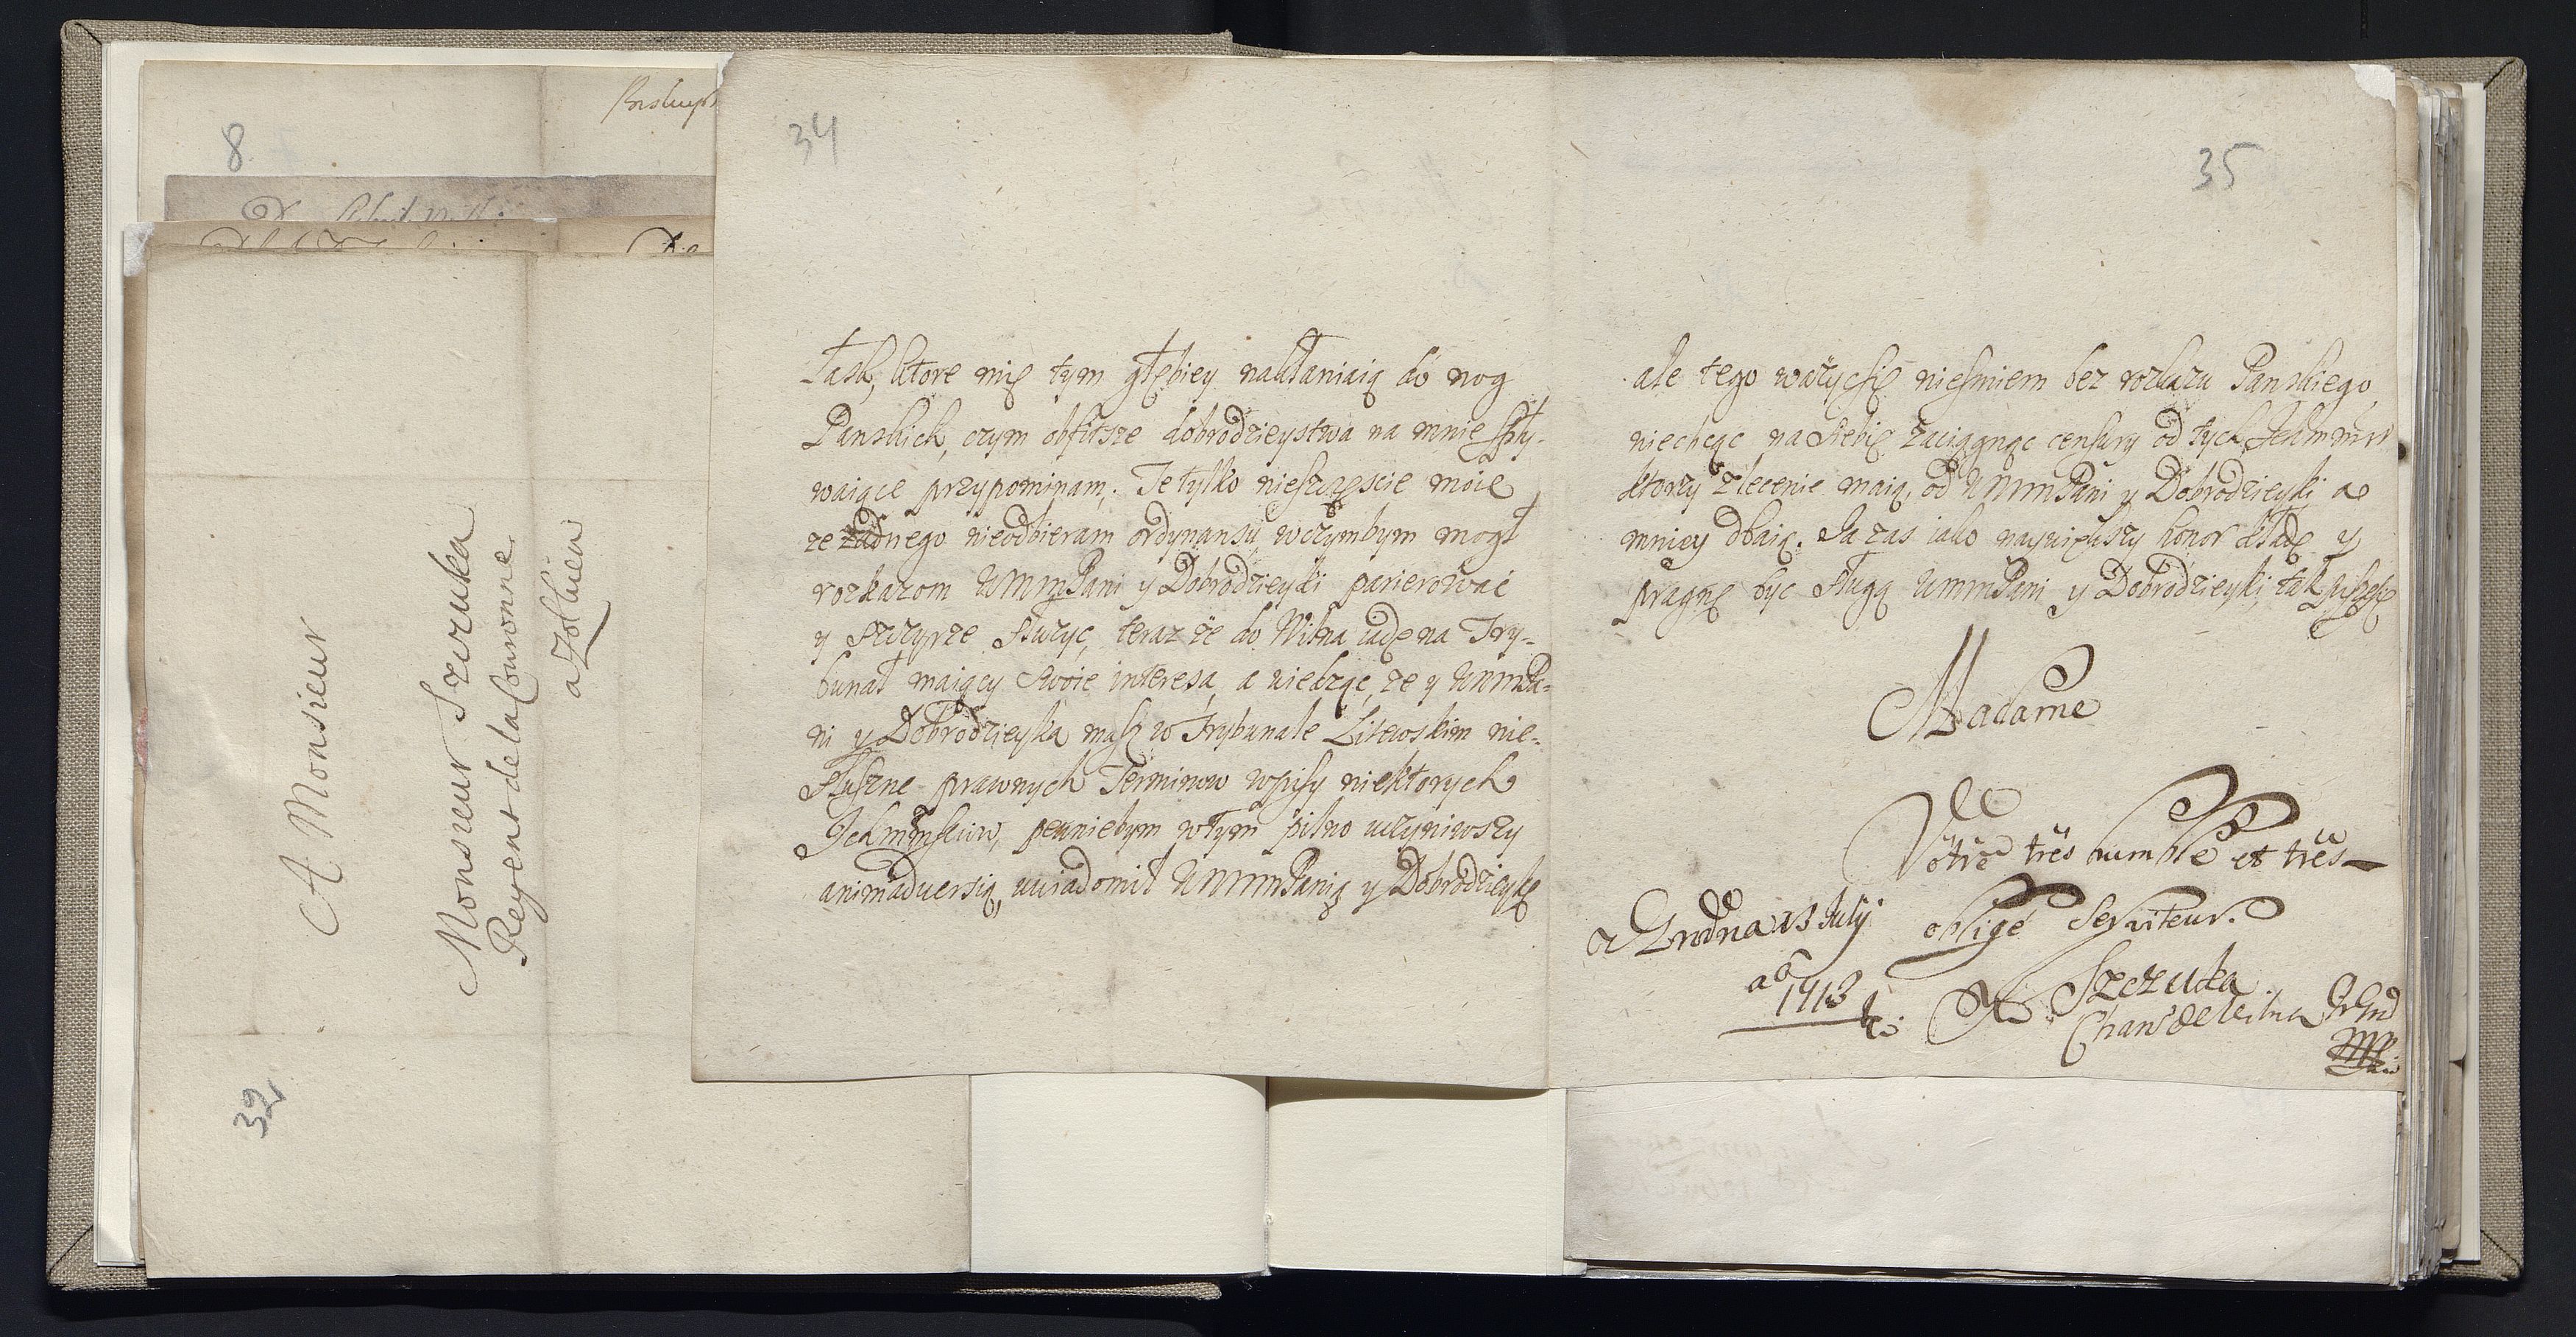 8
A Monsieur
Monsieur Szczuka
Regent de la Couronne
a Zolkiew
32
34
Łask, ktore mię tym głębiey nakłaniaią do nog
Panskich, czym obfitsze dobrodzieystwa na mnie spły-
waiące przypominam. Te tylko nieszczęscie moie
ze żadnego nieodbieram ordynansu wczymbym mogł
rozkazom WMMPani y Dobrodzieyki parierować
y szczyrze słuzyc, teraz że do Wilna iadę na Try-
bunał maiący swoie interesa, a wiedząc, ze y WMMPa-
ni y Dobrodzieyka masz w Trybunale Litewskim nie-
słuszne prawnych Terminow wpisy niektorych
Ichmmsciow, pewniebym wtym pilno uczyniwszy
animadversią, uwiadomił WMMPanią y Dobrodzieykę
35
ale tego wazycsię niesmiem bez rozkazu Panskiego,
niechcąc na siebie zaciągnąc censury od tych
ktorzy zlecenie maią, od WMMPani y Dobrodzieyki a
mniey dbaią. Ja zas iako naywiększy honor kładę y
pragnę byc sługą WMMPani y Dobrodzieyki, tak piszęsię
Madame
Votre tres humble et tres
obligé Serviteur.
a Grodna 13 July
ao
1713
Szczuka